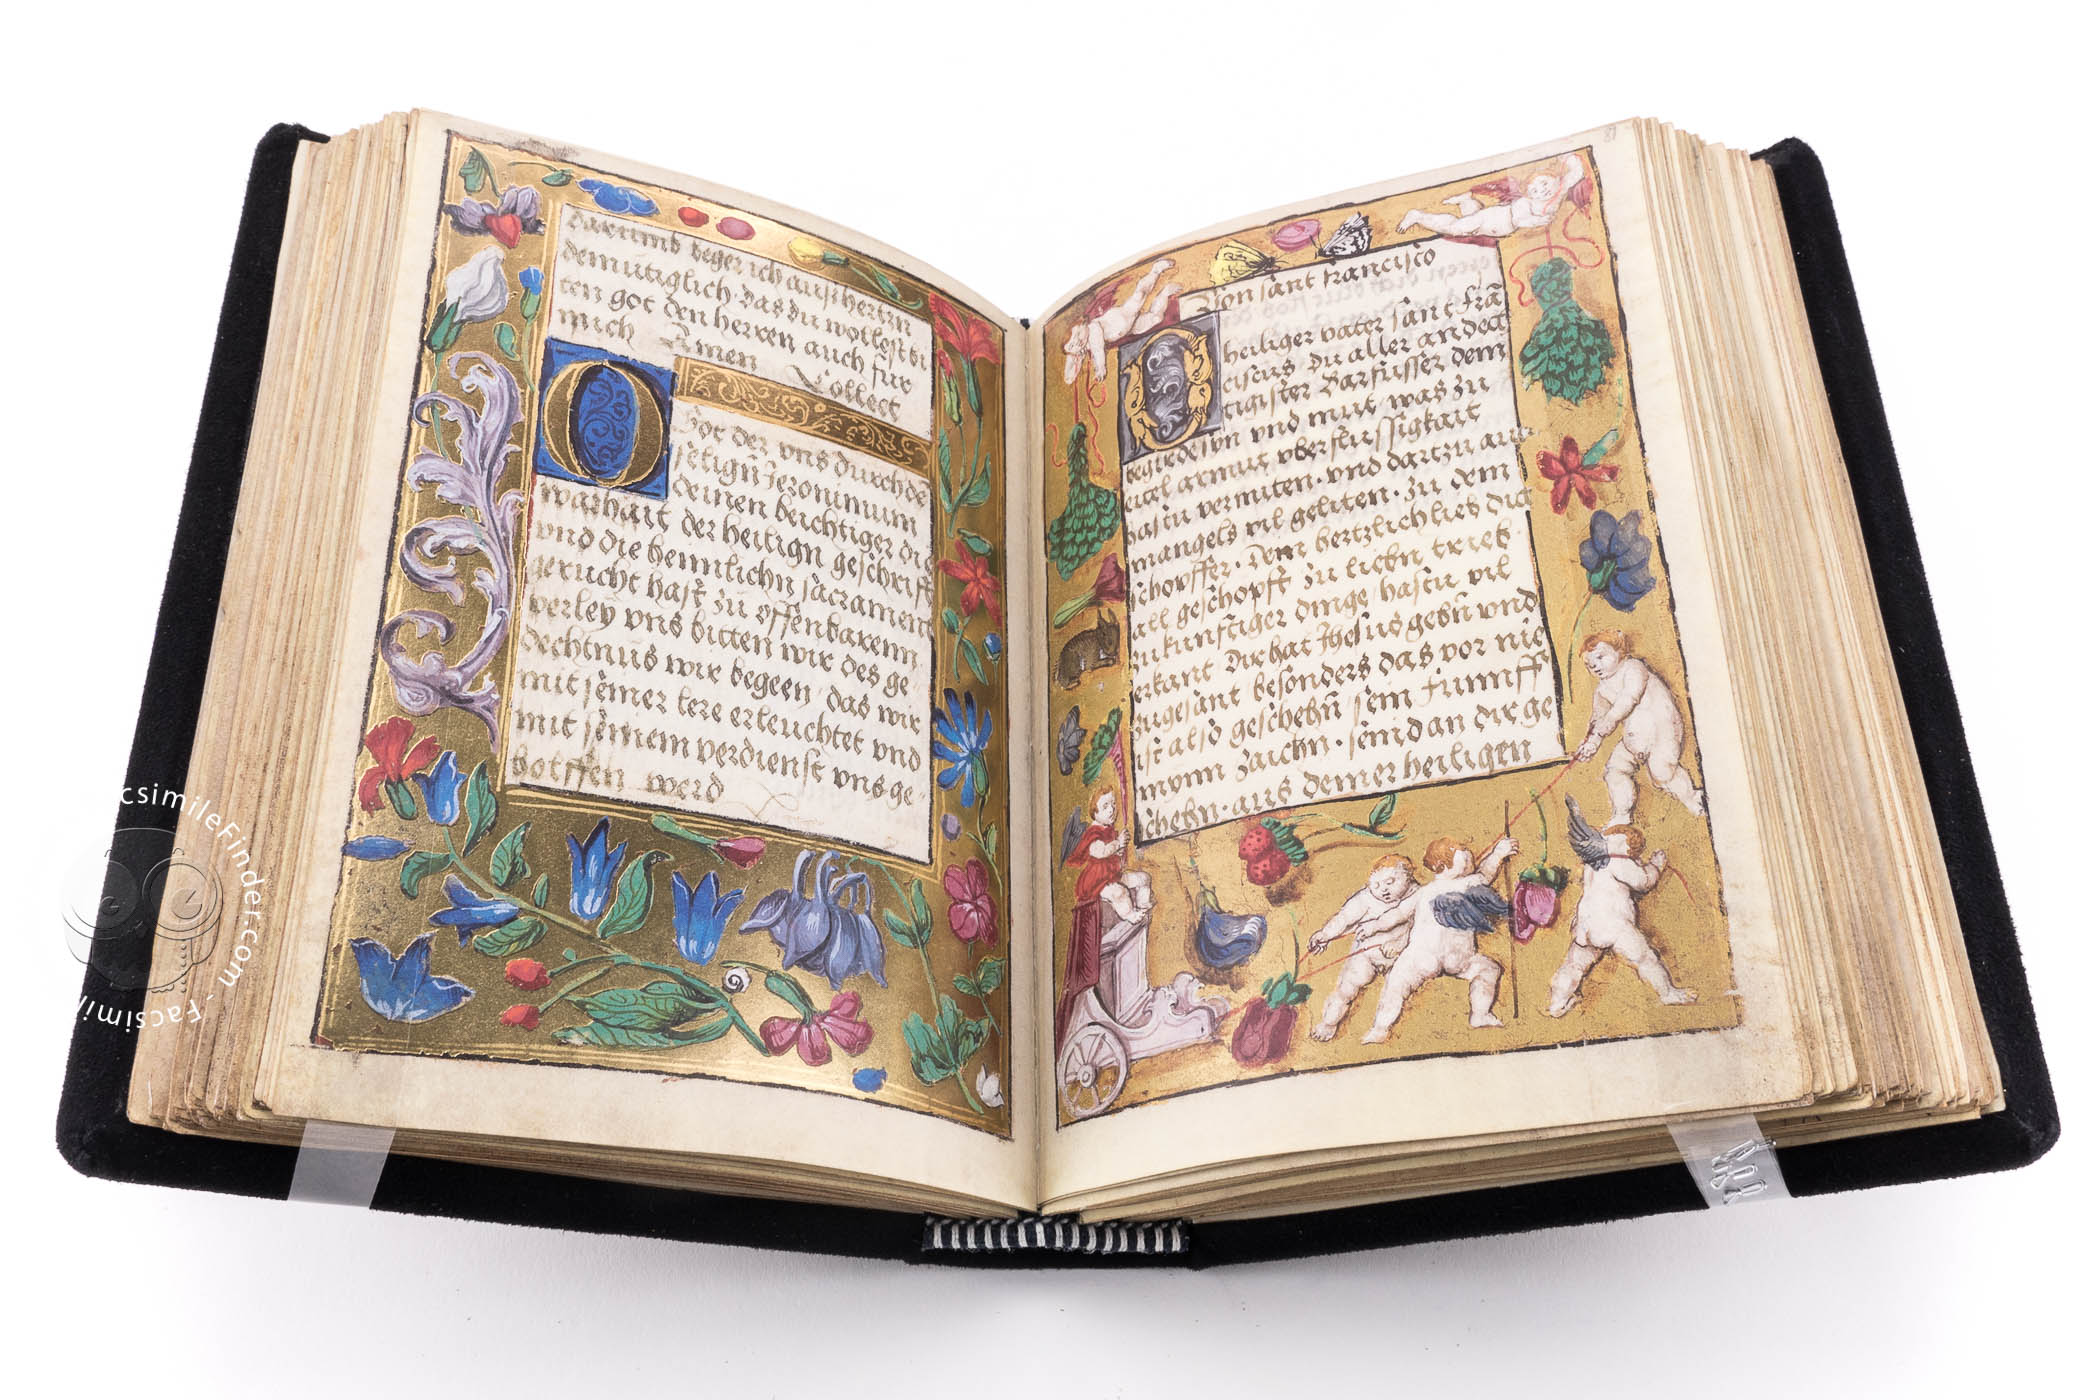 darumb beger ich auss hertzn
demutiglich das du wollest bi
ten got den herren auch fur
mich Amen Collect
O Got der uns durch de
seligñ Jeronimum
deinen beichtiger die
warhait der heilign geschrift
und die heimlichn sacrament
gerucht hast zu offenbarenn
verley uns bitten wir des ge
dechtnus wir begeen das wir
mit seiner lere erleuchtet und
mit seinem verdienst uns ge
holffen werd
87
Von sant francisco
O heiliger vater sanct frā
ciscus du aller andech
tigister Barfusser dem
begir dessyn und mut was zu
uberflussigkait
hastu vermiten · und dartzu auch
mangels vil geliten · zu dem
schopffer · dem hertzlich lieb die
all geschopft zu liebn trieb ·
zukunftiger dinge hastu vil
erkant dir hat Jhesus gebñ und
zugesant besonders das vor nie
ist also geschehñ sein funff
wunn zaichn · seind an dir ge
schehn · aus deiner heiligen
FacsimileFinder.com · Facsimil